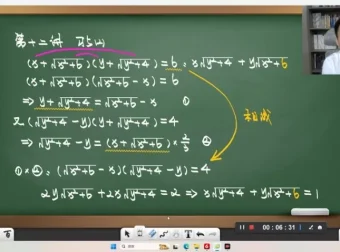 第十二讲
(x+√x²+6)(y+√y²+4)=6, x√y²+4+y√x²+6
(x+√x²+6)(√x²+6-x)=6
⇒ y+√y²+4=√x²+6-x ①
又(√y²+4-y)(y+√y²+4)=4
⇒ √y²+4-y=(x+√x²+6)×2/3 ②
相减
①×②:(√x²+6-x)(√y²+4-y)=4
2y√x²+6+2x√y²+4=2 ⇒ x√y²+4+y√x²+6=1
00:06:31